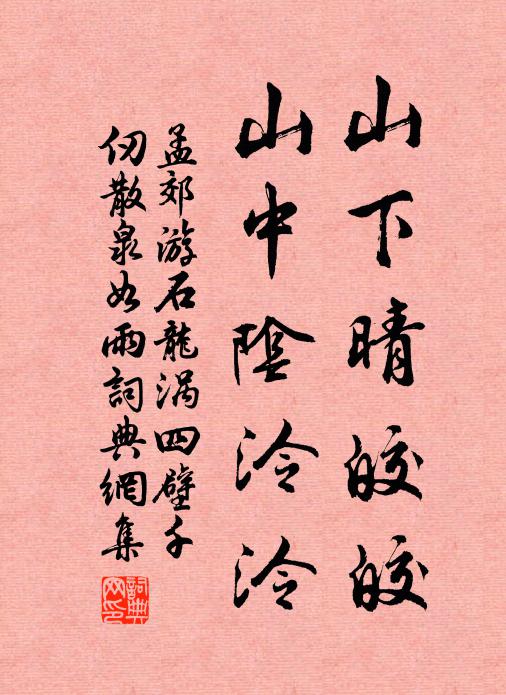 山下晴皎皎
山中陰泠泠
孟郊游石龍涡四壁千
仞散泉如雨詞典網集
詞典
网印